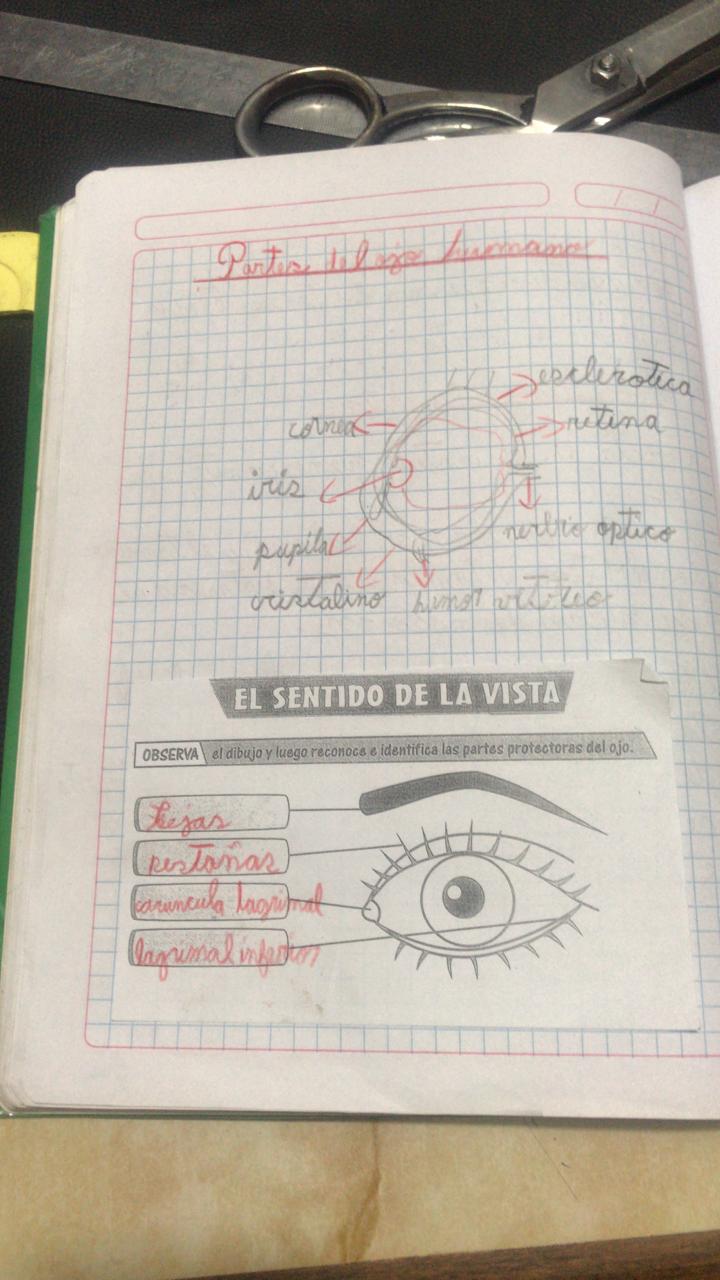 Partes del ojo humano
esclerotica
cornea
retina
iris
nervio optico
pupila
cristalino
humor vitoteo
EL SENTIDO DE LA VISTA
OBSERVA el dibujo y luego reconoce e identifica las partes protectoras del ojo.
kejas
pestañas
caruncula lagrimal
lagrimal inferior